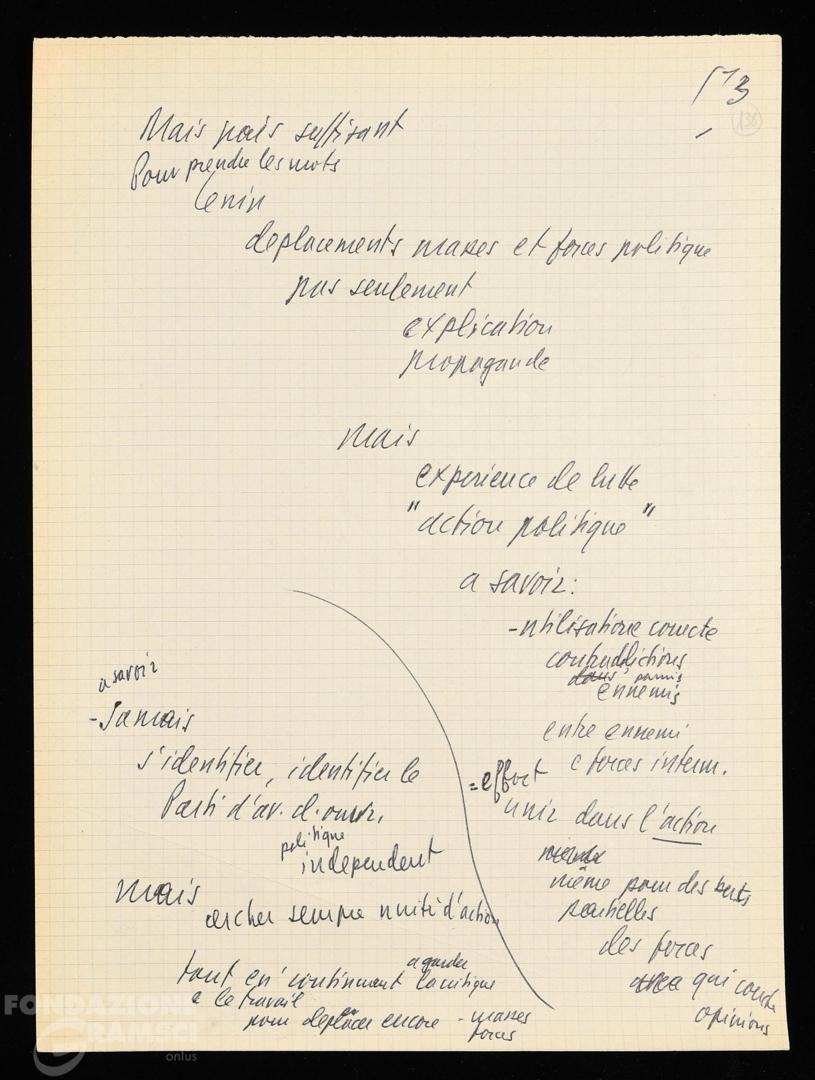 173
136
Mais pais suffisant
Pour prendre les mots
Lenin
deplacements masses et forces politique
pas seulement
explication
propagande
mais
experience de lutte
"action politique"
a savoir:
- utilisatione correcte
contraddictions
dans parmis
ennemis
entre ennemi
e forces interm.
= effort
unir dans l'action
même pour des buts
partielles
des forces
qui
opinions
a savoir
- Jamais
s'identifier, identifier le
Parti d'av. d. ouvr.
politique
independent
mais
cercher sempre unité d'action
a garder
tout en continuant la critique
e le travail
pour deplacer encore - masses
forces
FONDAZIONE
GRAMSCI
onlus